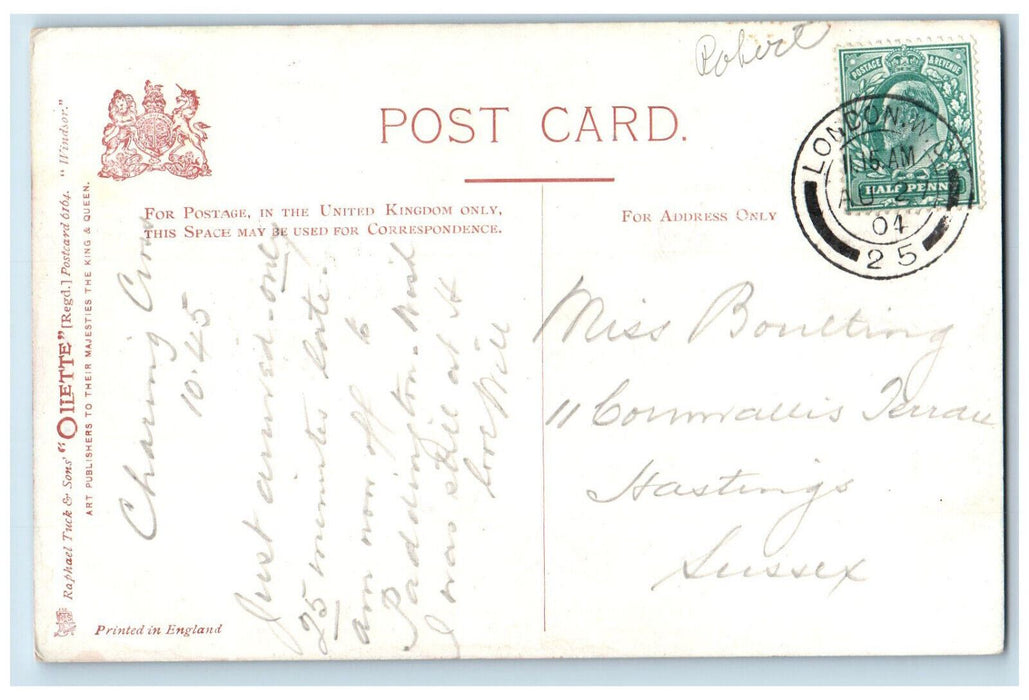 Robert
POSTAGE & REVENUE
HALF PENNY
LONDON. W.
15 AM
AU 27
04
25
POST CARD.
FOR POSTAGE, IN THE UNITED KINGDOM ONLY,
THIS SPACE MAY BE USED FOR CORRESPONDENCE.
FOR ADDRESS ONLY
Raphael Tuck & Sons' "OILETTE" [Regd.] Postcard 6164. "Windsor."
ART PUBLISHERS TO THEIR MAJESTIES THE KING & QUEEN.
Printed in England
Charing Cross
10.45
Just arrived - only
25 minutes late.
am now off to
Paddington. Wish
I was still at H
love Will
Miss Boulting
11 Cornwallis Terrace
Hastings
Sussex